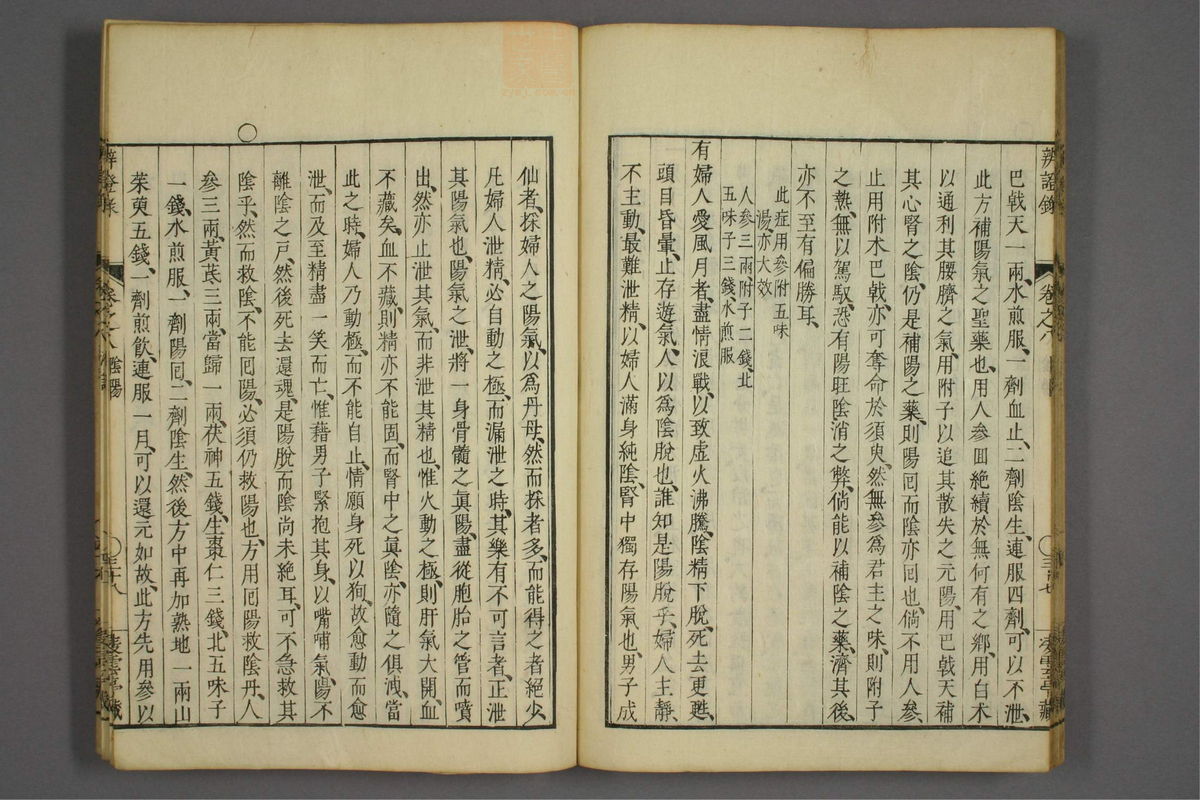 辨證錄 卷之六
巴戟天一兩、水煎服、一劑血止、二劑陰生、連服四劑、可以不泄、
此方補陽氣之聖藥也、用人參回絕續於無何有之鄉、用白朮
以通利其腰臍之氣、用附子以追其散失之元陽、用巴戟天補
其心腎之陰、仍是補陽之藥、則陽回而陰亦回也、倘不用人參、
止用附朮巴戟、亦可奪命於須臾、然無參爲君主之味、則附子
之熱、無以駕馭、恐有陽旺陰消之弊、倘能以補陰之藥、濟其後、
亦不至有偏勝耳、
此症用參附五味
湯亦大效
人參三兩、附子二錢、北
五味子三錢、水煎服
有婦人愛風月者、盡情浪戰、以致虛火沸騰、陰精下脫、死去更甦、
頭目昏暈、止存遊氣、人以爲陰脫也、誰知是陽脫乎、婦人主靜、
不主動、最難泄精、以婦人滿身純陰、腎中獨存陽氣也、男子成
仙者、採婦人之陽氣、以爲丹母、然而採者多、而能得之者絕少、
凡婦人泄精、必自動之極、而漏泄之時、其樂有不可言者、正泄
其陽氣也、陽氣之泄、將一身骨髓之眞陽、盡從胞胎之管而噴
出、然亦止泄其氣、而非泄其精也、惟火動之極、則肝氣大開、血
不藏矣、血不藏、則精亦不能固、而腎中之眞陰、亦隨之俱洩、當
此之時、婦人乃動極、而不能自止、情願身死以狥、故愈動而愈
泄、而及至精盡一笑而亡、惟藉男子緊抱其身、以嘴哺氣、陽不
離陰之戸、然後死去還魂、是陽脫而陰尚未絕耳、可不急救其
○
陰乎、然而救陰、不能囘陽、必須仍救陽也、方用囘陽救陰丹、人
參三兩、黃茋三兩、當歸一兩、茯神五錢、生棗仁三錢、北五味子
一錢、水煎服、一劑陽囘、二劑陰生、然後方中再加熟地一兩山
茱萸五錢、一劑煎飲、連服一月、可以還元如故、此方先用參以
陰陽